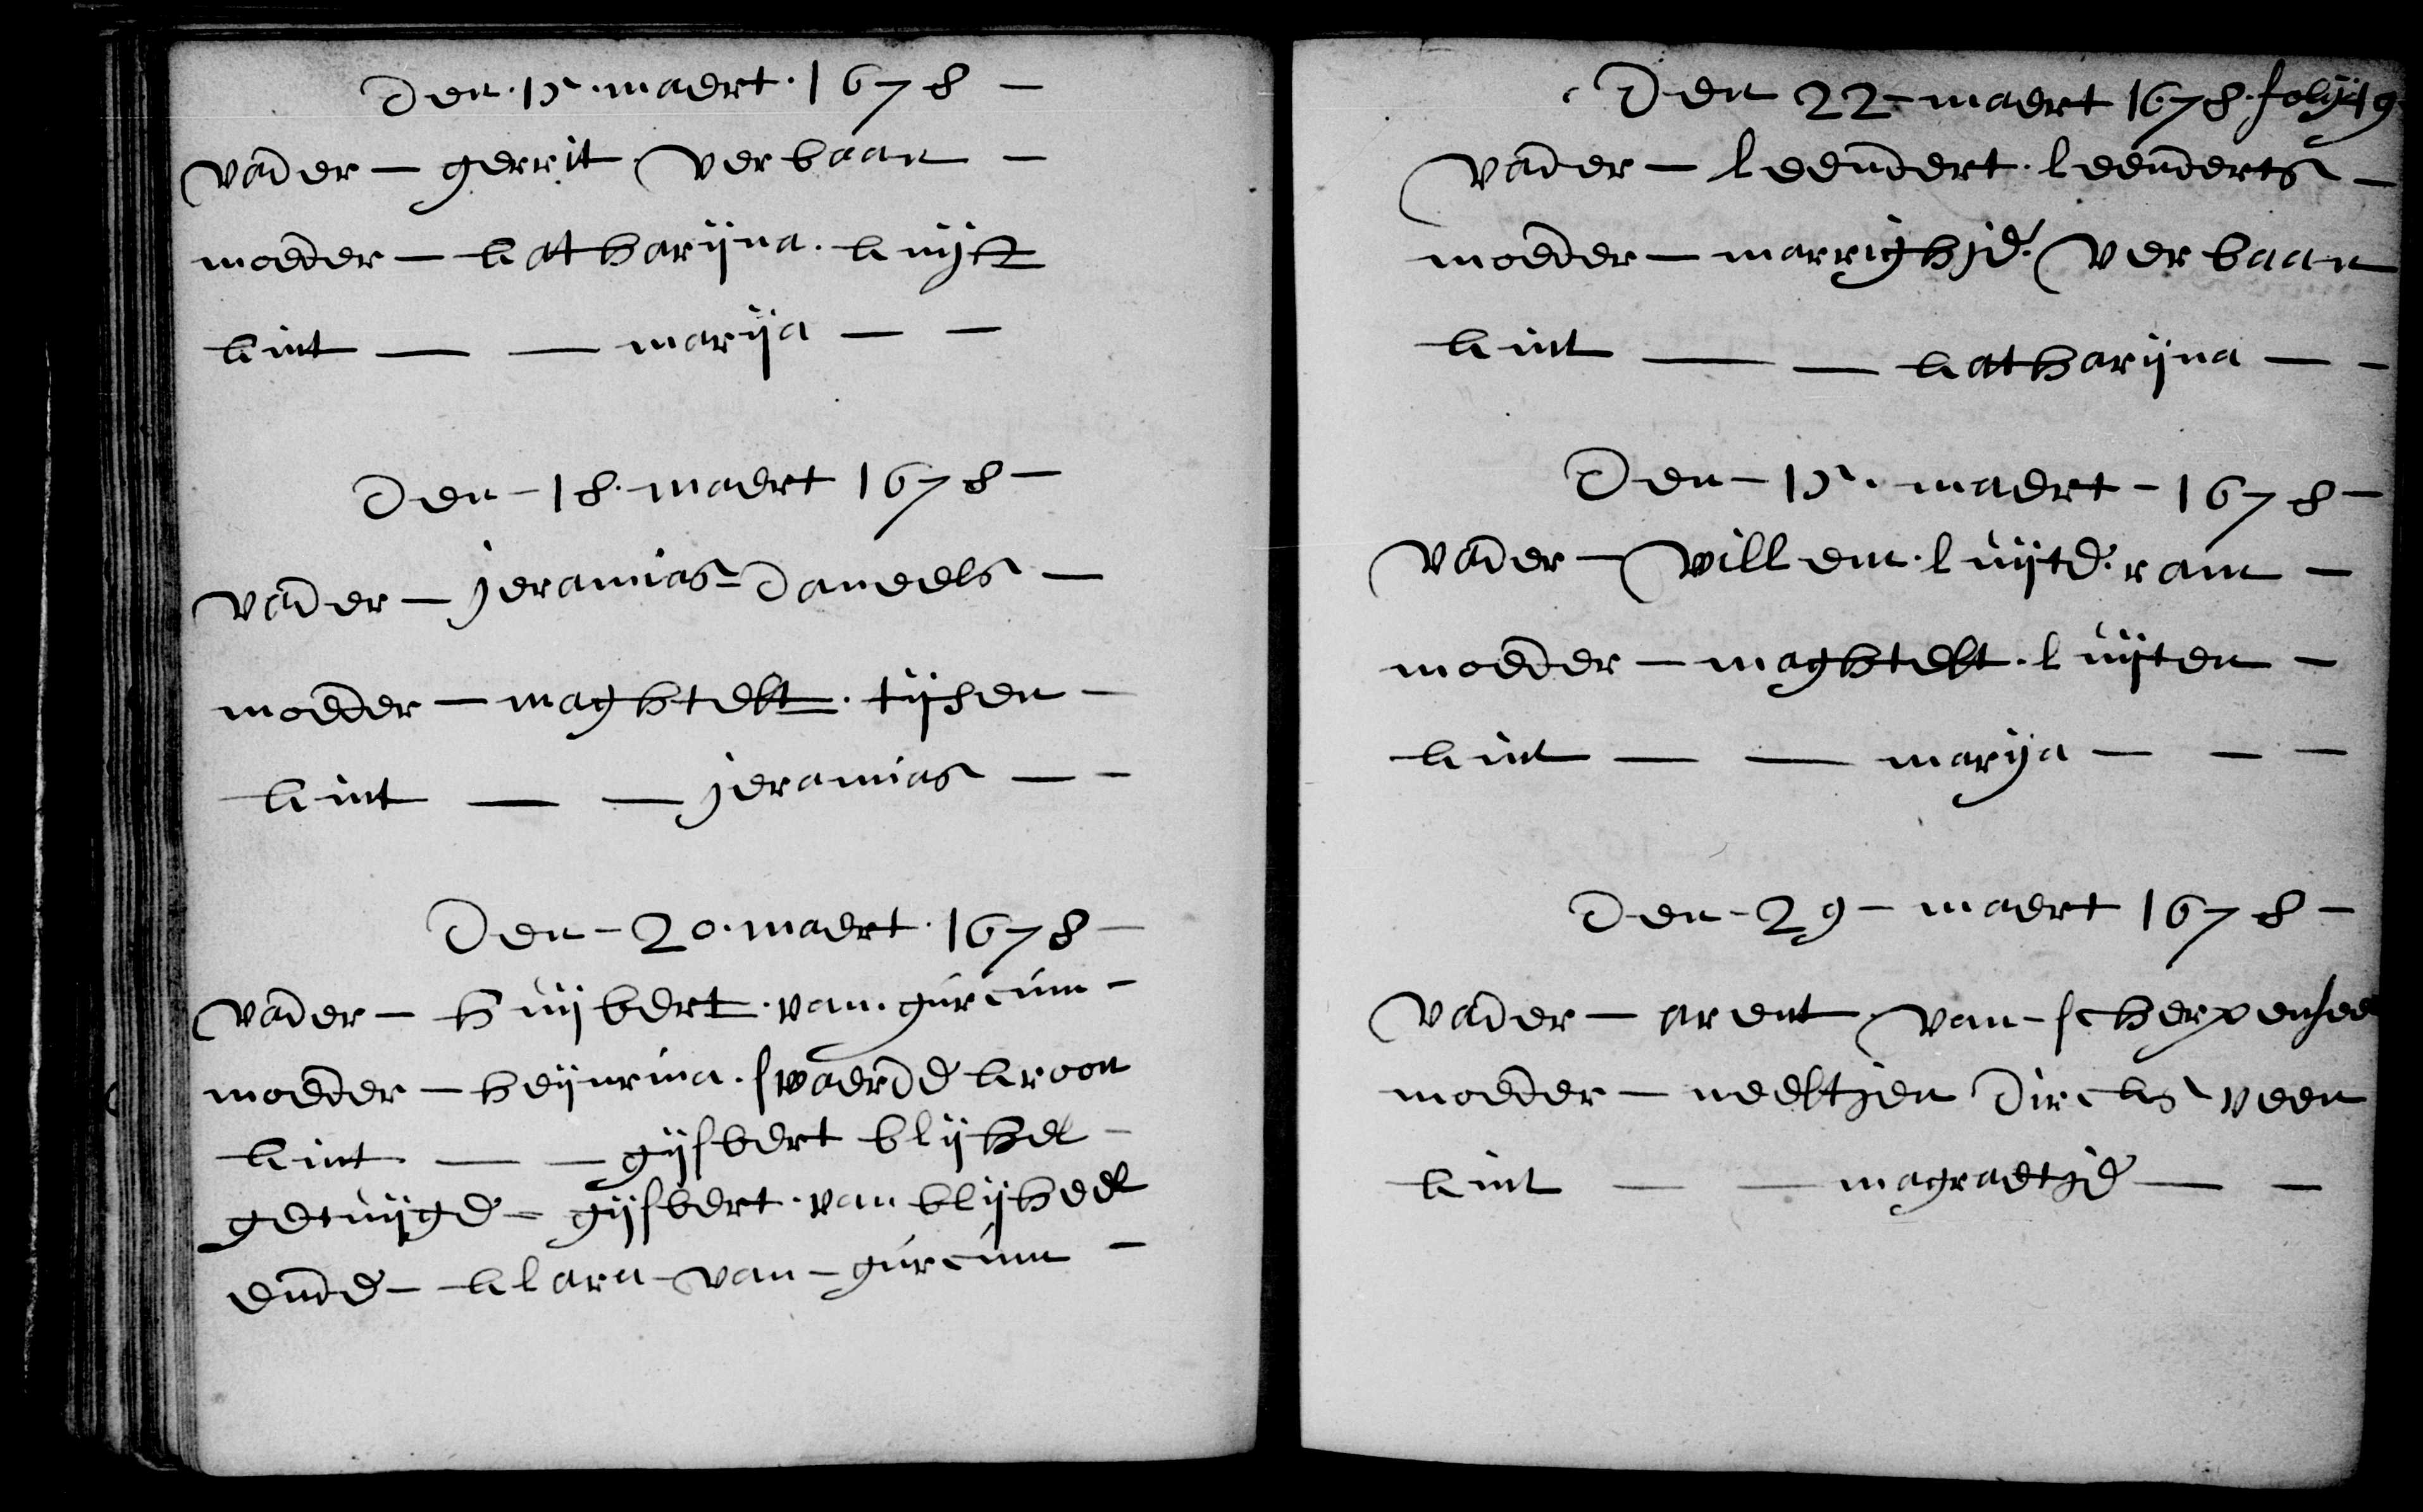 Den · 15 · maert · 1678 —
vader — gerrit verbaan —
moeder — katharijna · kuijff
kint — — marija — —
Den — 18 · maert 1678 —
vader — jeramias — daneels —
moeder — maghtelt · tijsen —
kint — — jeramias — —
Den — 20 · maert · 1678 —
vader — huijbert · van · gurcum —
moeder — heijnrina · swaerde kroon
kint — — gijsbert blijhel —
getuijge — gijsbert · van blijheel
ende — klara — van — gurcum —
Den 22 — maert 1678 · folij 49
vader — leendert · leenderts —
moeder — marrighje · verbaan
kint — — katharijna — —
Den — 15 · maert — 1678 —
vader — willem · luijte · ram —
moeder — maghtelt · luijten —
kint — — marija — — —
Den — 29 — maert 1678 —
vader — arent van — scherpensee
moeder — neeltjen dircks veen
kint — — magraetje — —